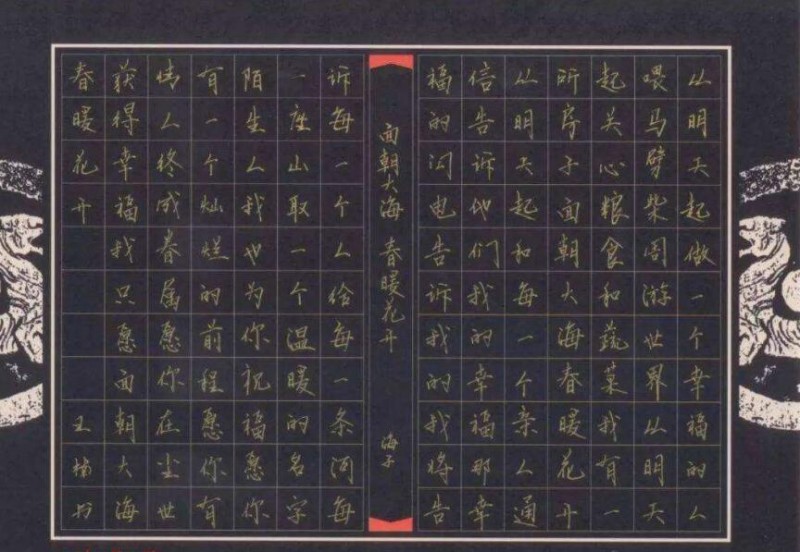 从明天起做一个幸福的人
喂马劈柴周游世界从明天
起关心粮食和蔬菜我有一
所房子面朝大海春暖花开
从明天起和每一个亲人通
信告诉他们我的幸福那幸
福的闪电告诉我的我将告
面朝大海 春暖花开 海子
诉每一个人给每一条河每
一座山取一个温暖的名字
陌生人我也为你祝福愿你
有一个灿烂的前程愿你有
情人终成眷属愿你在尘世
获得幸福我只愿面朝大海
春暖花开 王楠书